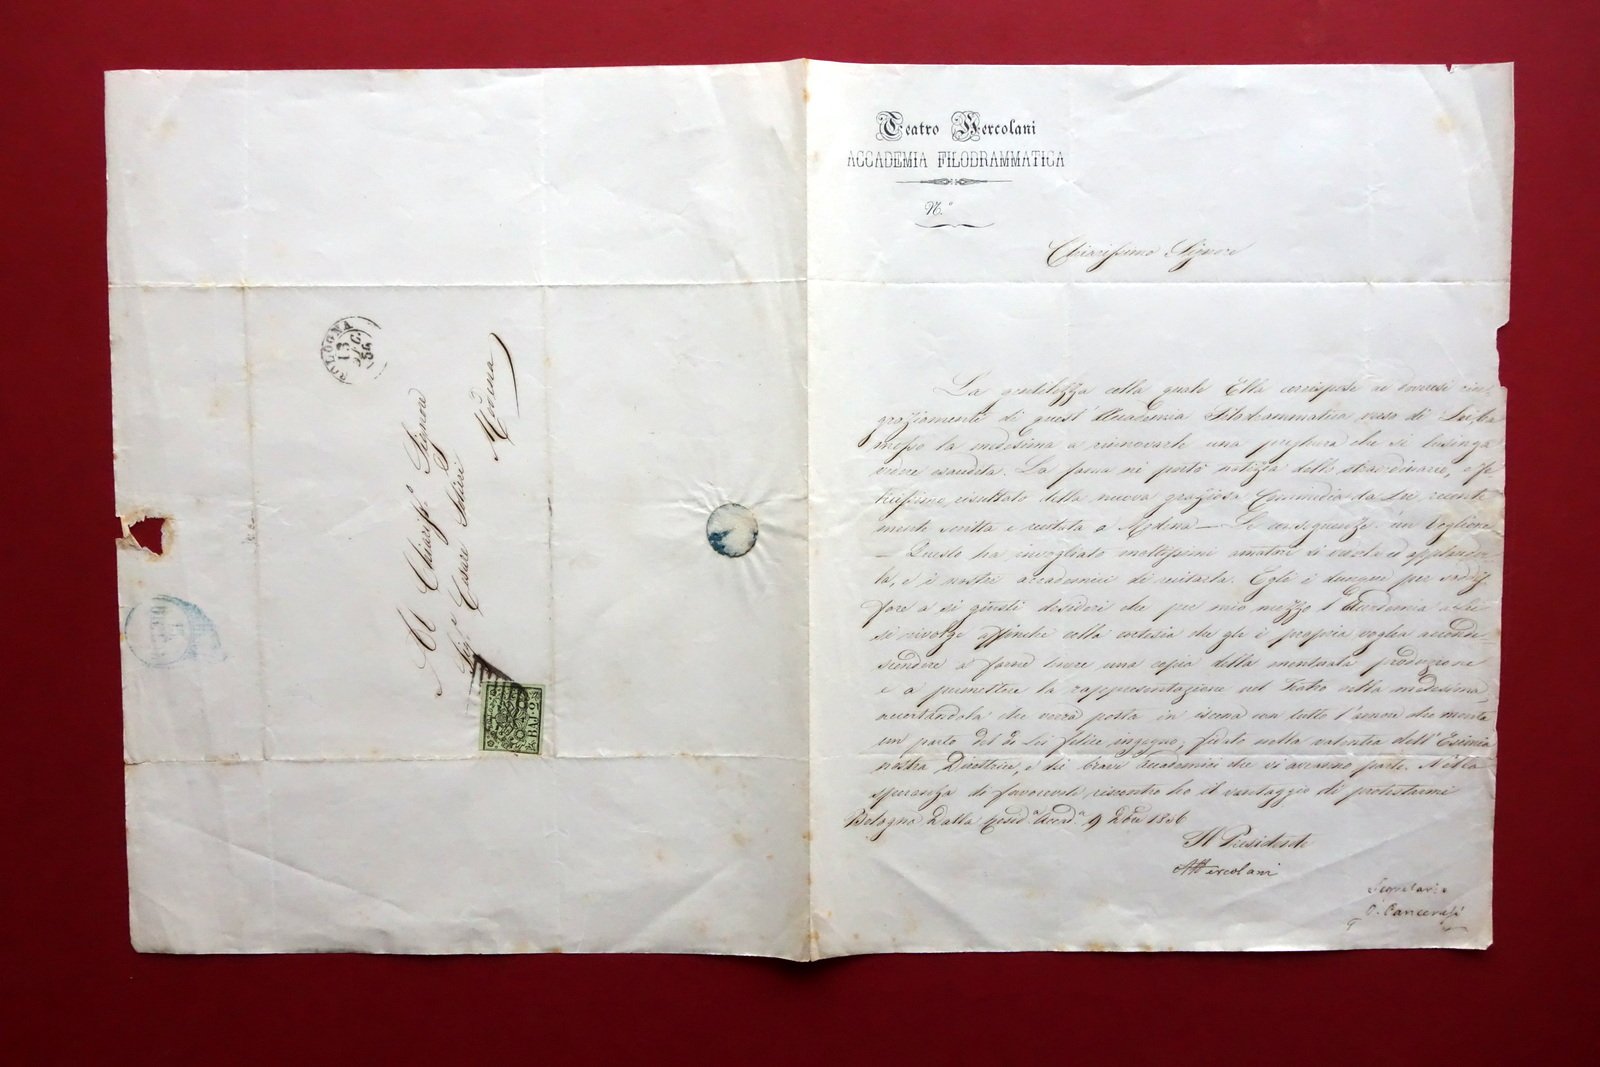 BOLOGNA
13
DEC.
56
Al Chiariss.o Signore
Sig.r Cesare
Modena
BAJ. 2.
Teatro Hercolani
ACCADEMIA FILODRAMMATICA
N.o
Chiarissimo Signore
La gentilezza colla quale Ella corrispose ai doverosi rin-
graziamenti di quest'Accademia Filodrammatica verso di Lei, ha
messo la medesima a rinnovarle una preghiera che si lusinga
vedere esaudita. La fama ne portò notizia dello straordinario, e fe-
licissimo risultato della nuova graziosa Commedia da Lei recente-
mente scritta e recitata a Modena — Le conseguenze d'un Voglione
— Questo ha invogliato moltissimi amatori di udirla ed applaudir-
la, e i nostri accademici di recitarla. Egli è dunque per soddis-
fare a sì giusti desideri che per mio mezzo l'Accademia a Lei
si rivolge affinchè colla cortesia che gli è propria voglia accondi-
scendere a farne tenere una copia della mentovata produzione
e a permettere la rappresentazione nel Teatro della medesima,
accertandola che verrà posta in iscena con tutto l'amore che merita
un parto del di Lei felice ingegno, fidato nella valentia dell'Esimia
nostra Direttrice, e dei bravi Accademici che vi avranno parte. Nella
speranza di favorevole riscontro ho il vantaggio di protestarmi
Bologna dalla Resid.a Accad.a 9 Xbre 1856
Il Presidente
Hercolani
Segretario